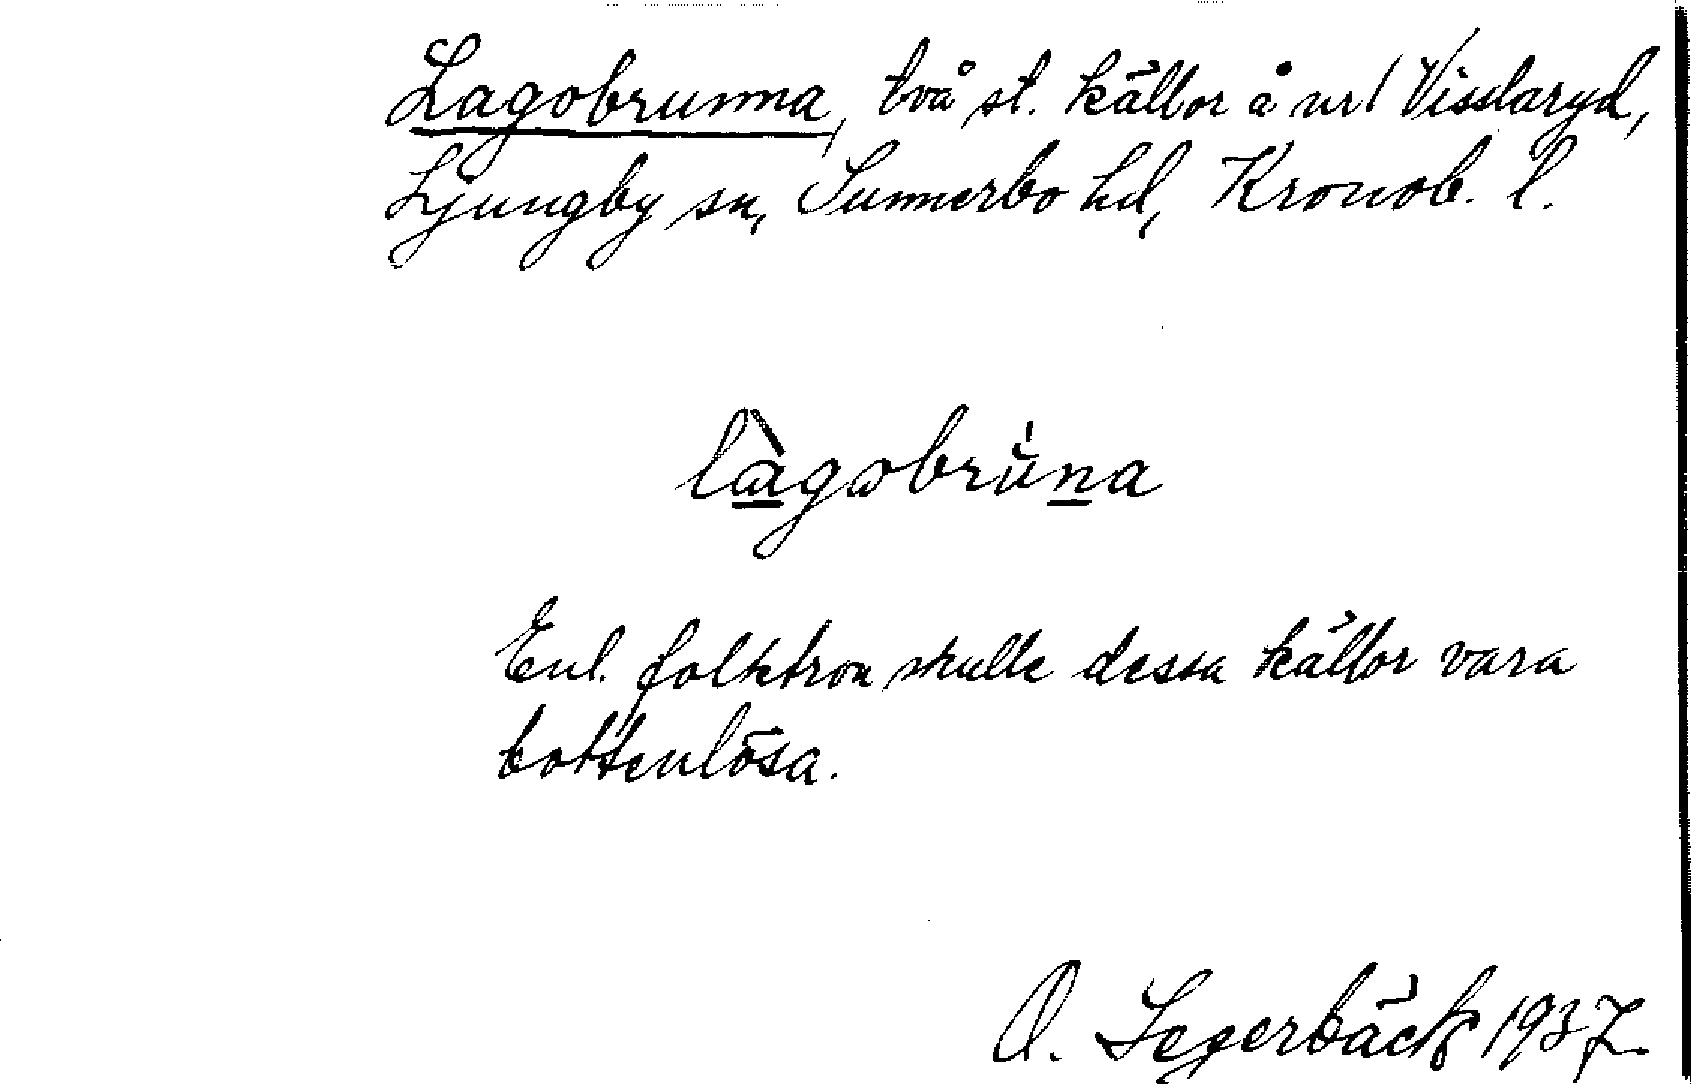 Lagobrunna, två st. källor å nr 1 Visslaryd,
Ljungby sn, Sunnerbo hd, Kronob. l.
làgobruna
Enl. folktron skulle dessa källor vara
bottenlösa.
O. Segerbäck 1937.